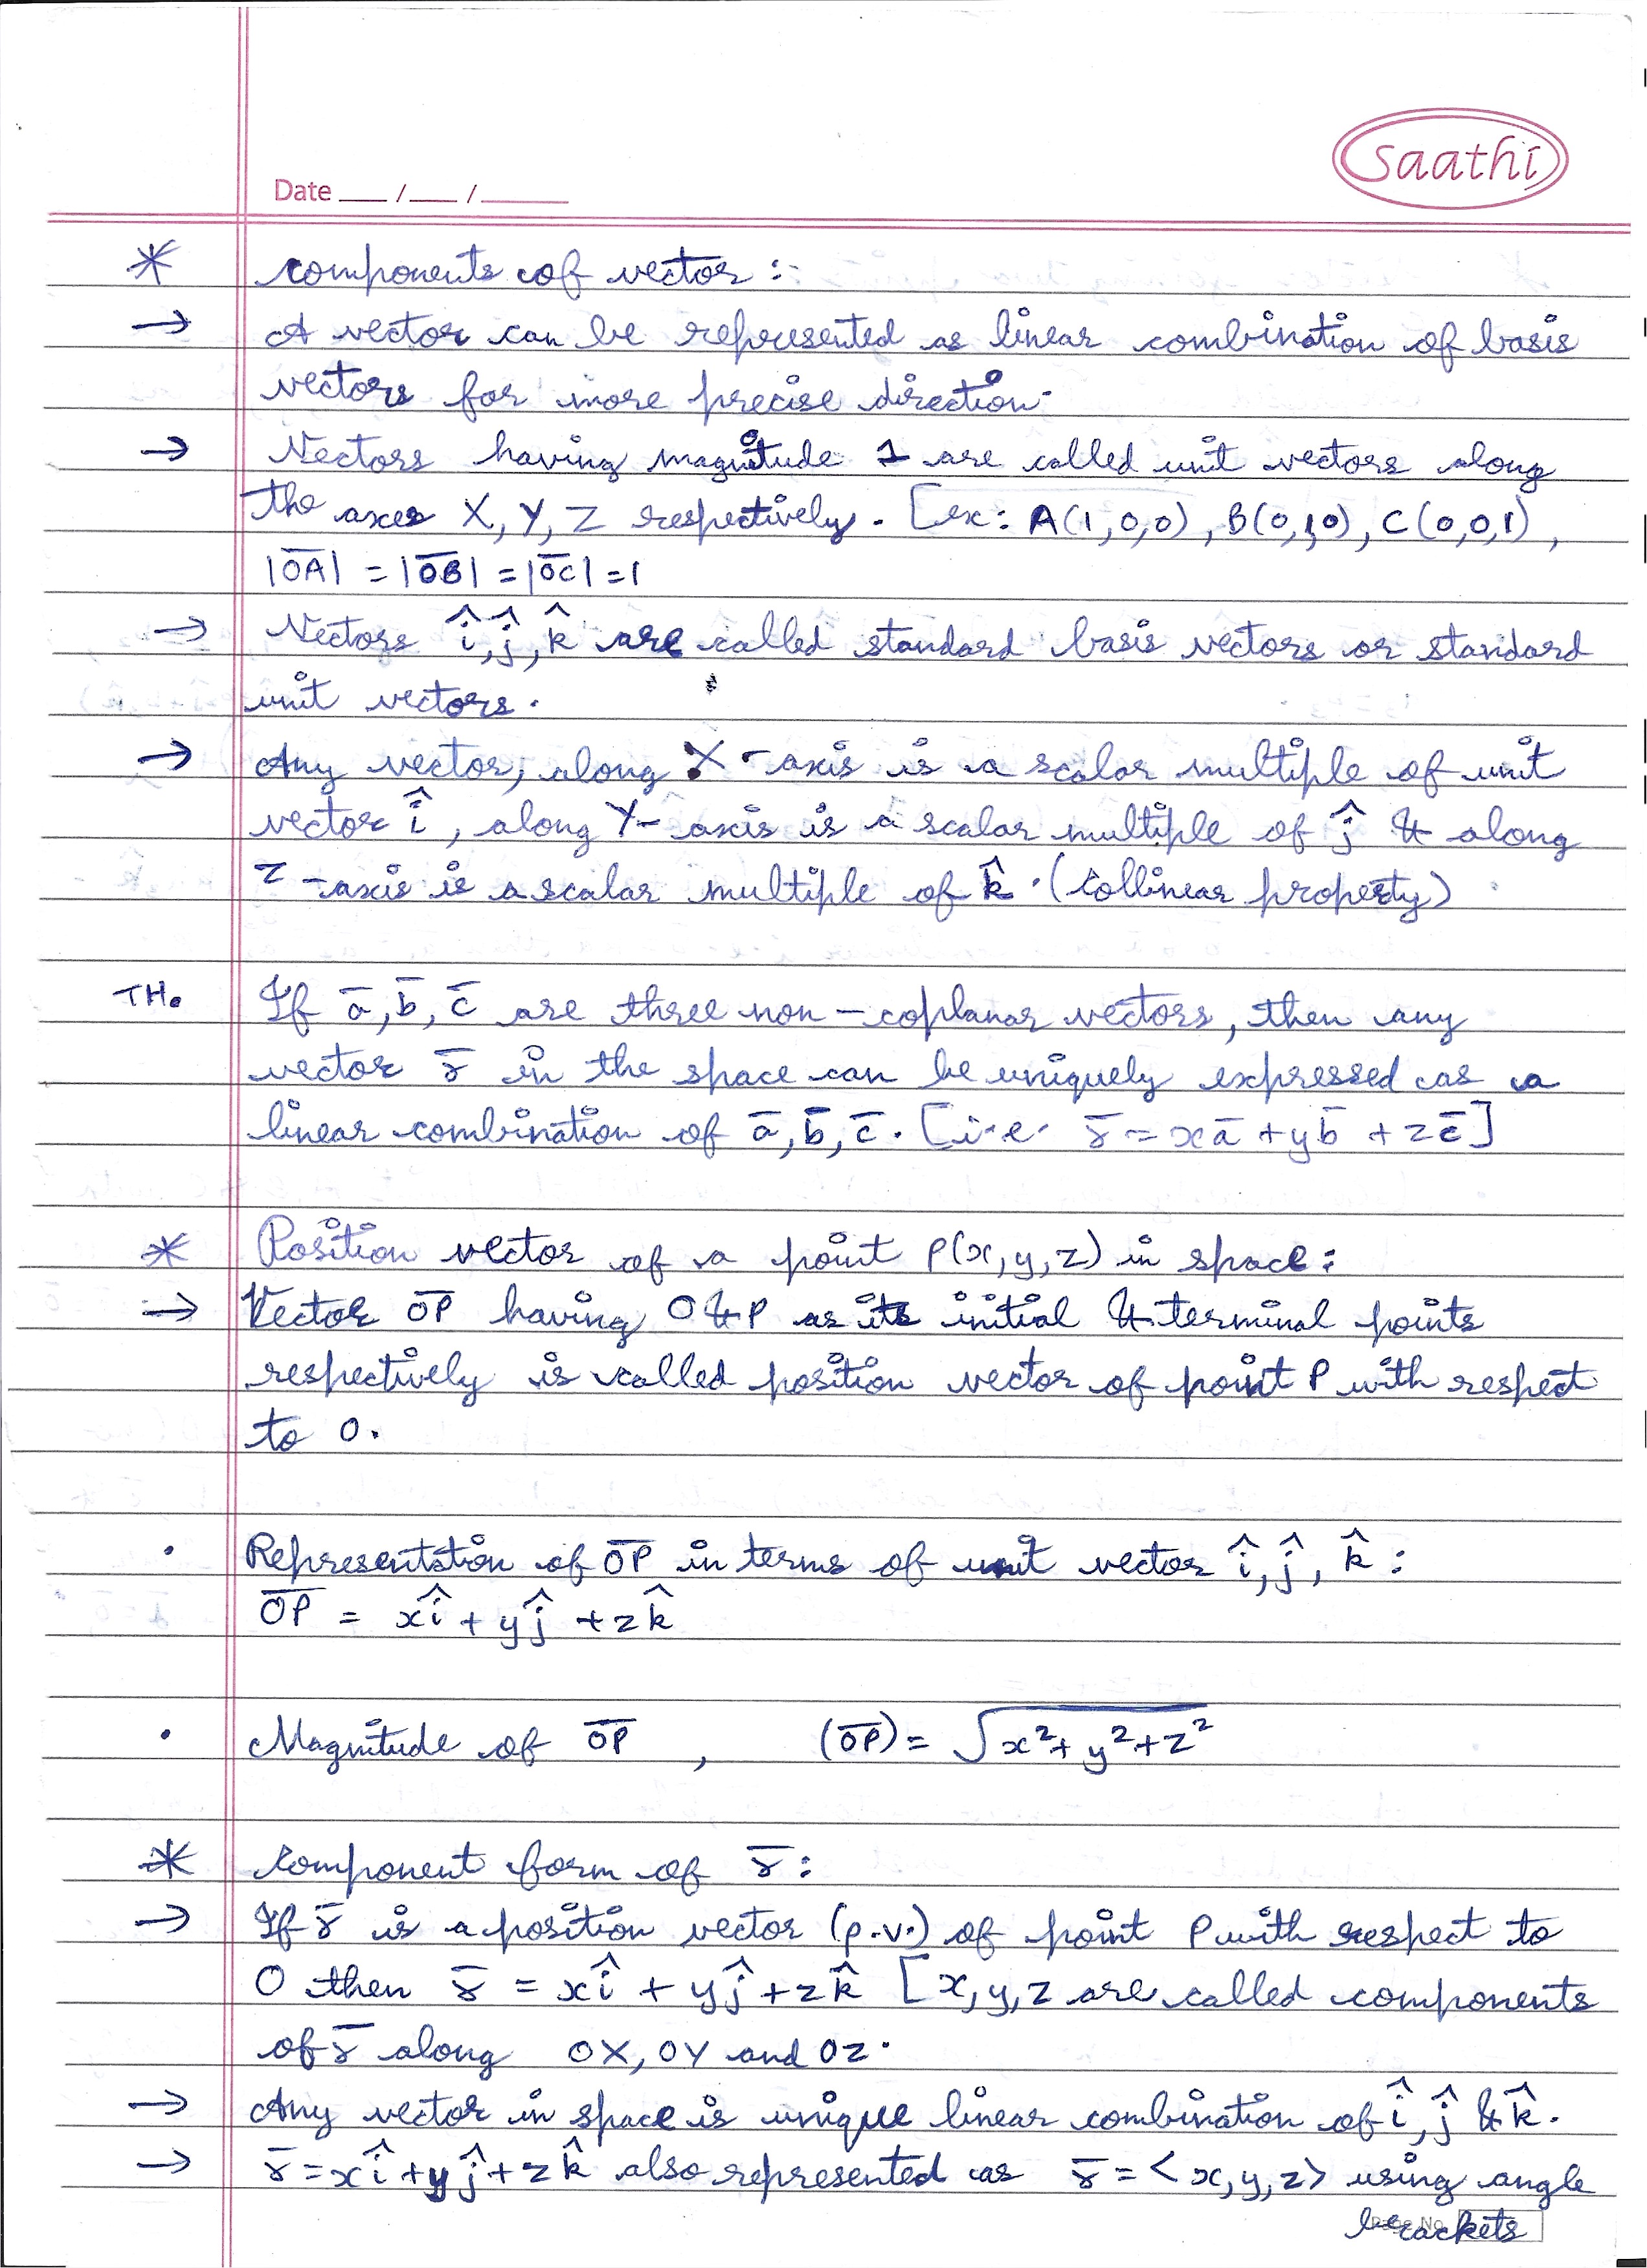 Saathi
Date ___/___/_____
* components of vector :-
→ A vector can be represented as linear combination of basis
vectors for more precise direction.
→ Vectors having magnitude 1 are called unit vectors along
the axes X, Y, Z respectively. [ex: A(1,0,0), B(0,1,0), C(0,0,1),
|O̅A̅| = |O̅B̅| = |O̅C̅| = 1
→ Vectors î, ĵ, k̂ are called standard basis vectors or standard
unit vectors.
→ Any vector, along X-axis is a scalar multiple of unit
vector î, along Y-axis is a scalar multiple of ĵ & along
Z-axis is a scalar multiple of k̂. (Collinear property)
TH. If a̅, b̅, c̅ are three non-coplanar vectors, then any
vector r̅ in the space can be uniquely expressed as a
linear combination of a̅, b̅, c̅. [i.e. r̅ = xa̅ + yb̅ + zc̅]
* Position vector of a point P(x, y, z) in space:
→ Vector O̅P̅ having O & P as its initial & terminal points
respectively is called position vector of point P with respect
to O.
• Representation of O̅P̅ in terms of unit vector î, ĵ, k̂ :
O̅P̅ = xî + yĵ + zk̂
• Magnitude of O̅P̅ , (O̅P̅) = √x²+y²+z²
* Component form of r̅ :
→ If r̅ is a position vector (p.v.) of point P with respect to
O then r̅ = xî + yĵ + zk̂ [x, y, z are called components
of r̅ along OX, OY and OZ.
→ Any vector in space is unique linear combination of î, ĵ & k̂.
→ r̅ = xî + yĵ + zk̂ also represented as r̅ = <x, y, z> using angle
brackets
Page No.